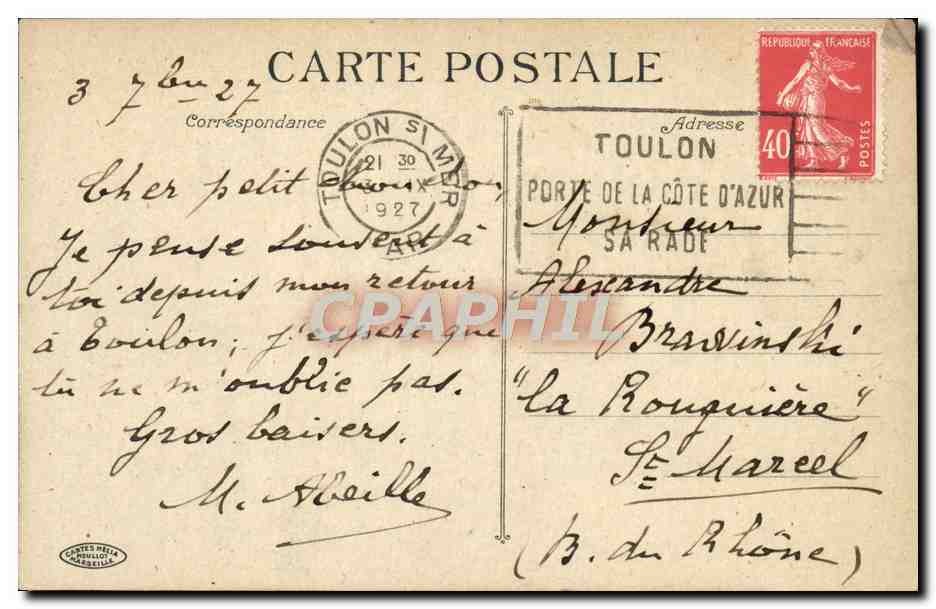 CARTE POSTALE
3 7bre 27
Correspondance
Cher petit
Je pense souvent à
toi depuis mon retour
à Toulon; j'espère que
tu ne m'oublie pas.
Gros baisers.
M. Abeille
CARTES HELIA
MOULLOT
MARSEILLE
TOULON SI MER
21 30
IX
1927
VAR
TOULON
PORTE DE LA CÔTE D'AZUR
SA RADE
REPUBLIQUE FRANÇAISE
40
POSTES
Adresse
Monsieur
Alexandre
Brawinski
"La Rouguière"
St Marcel
(B. du Rhône)
CPAPHIL